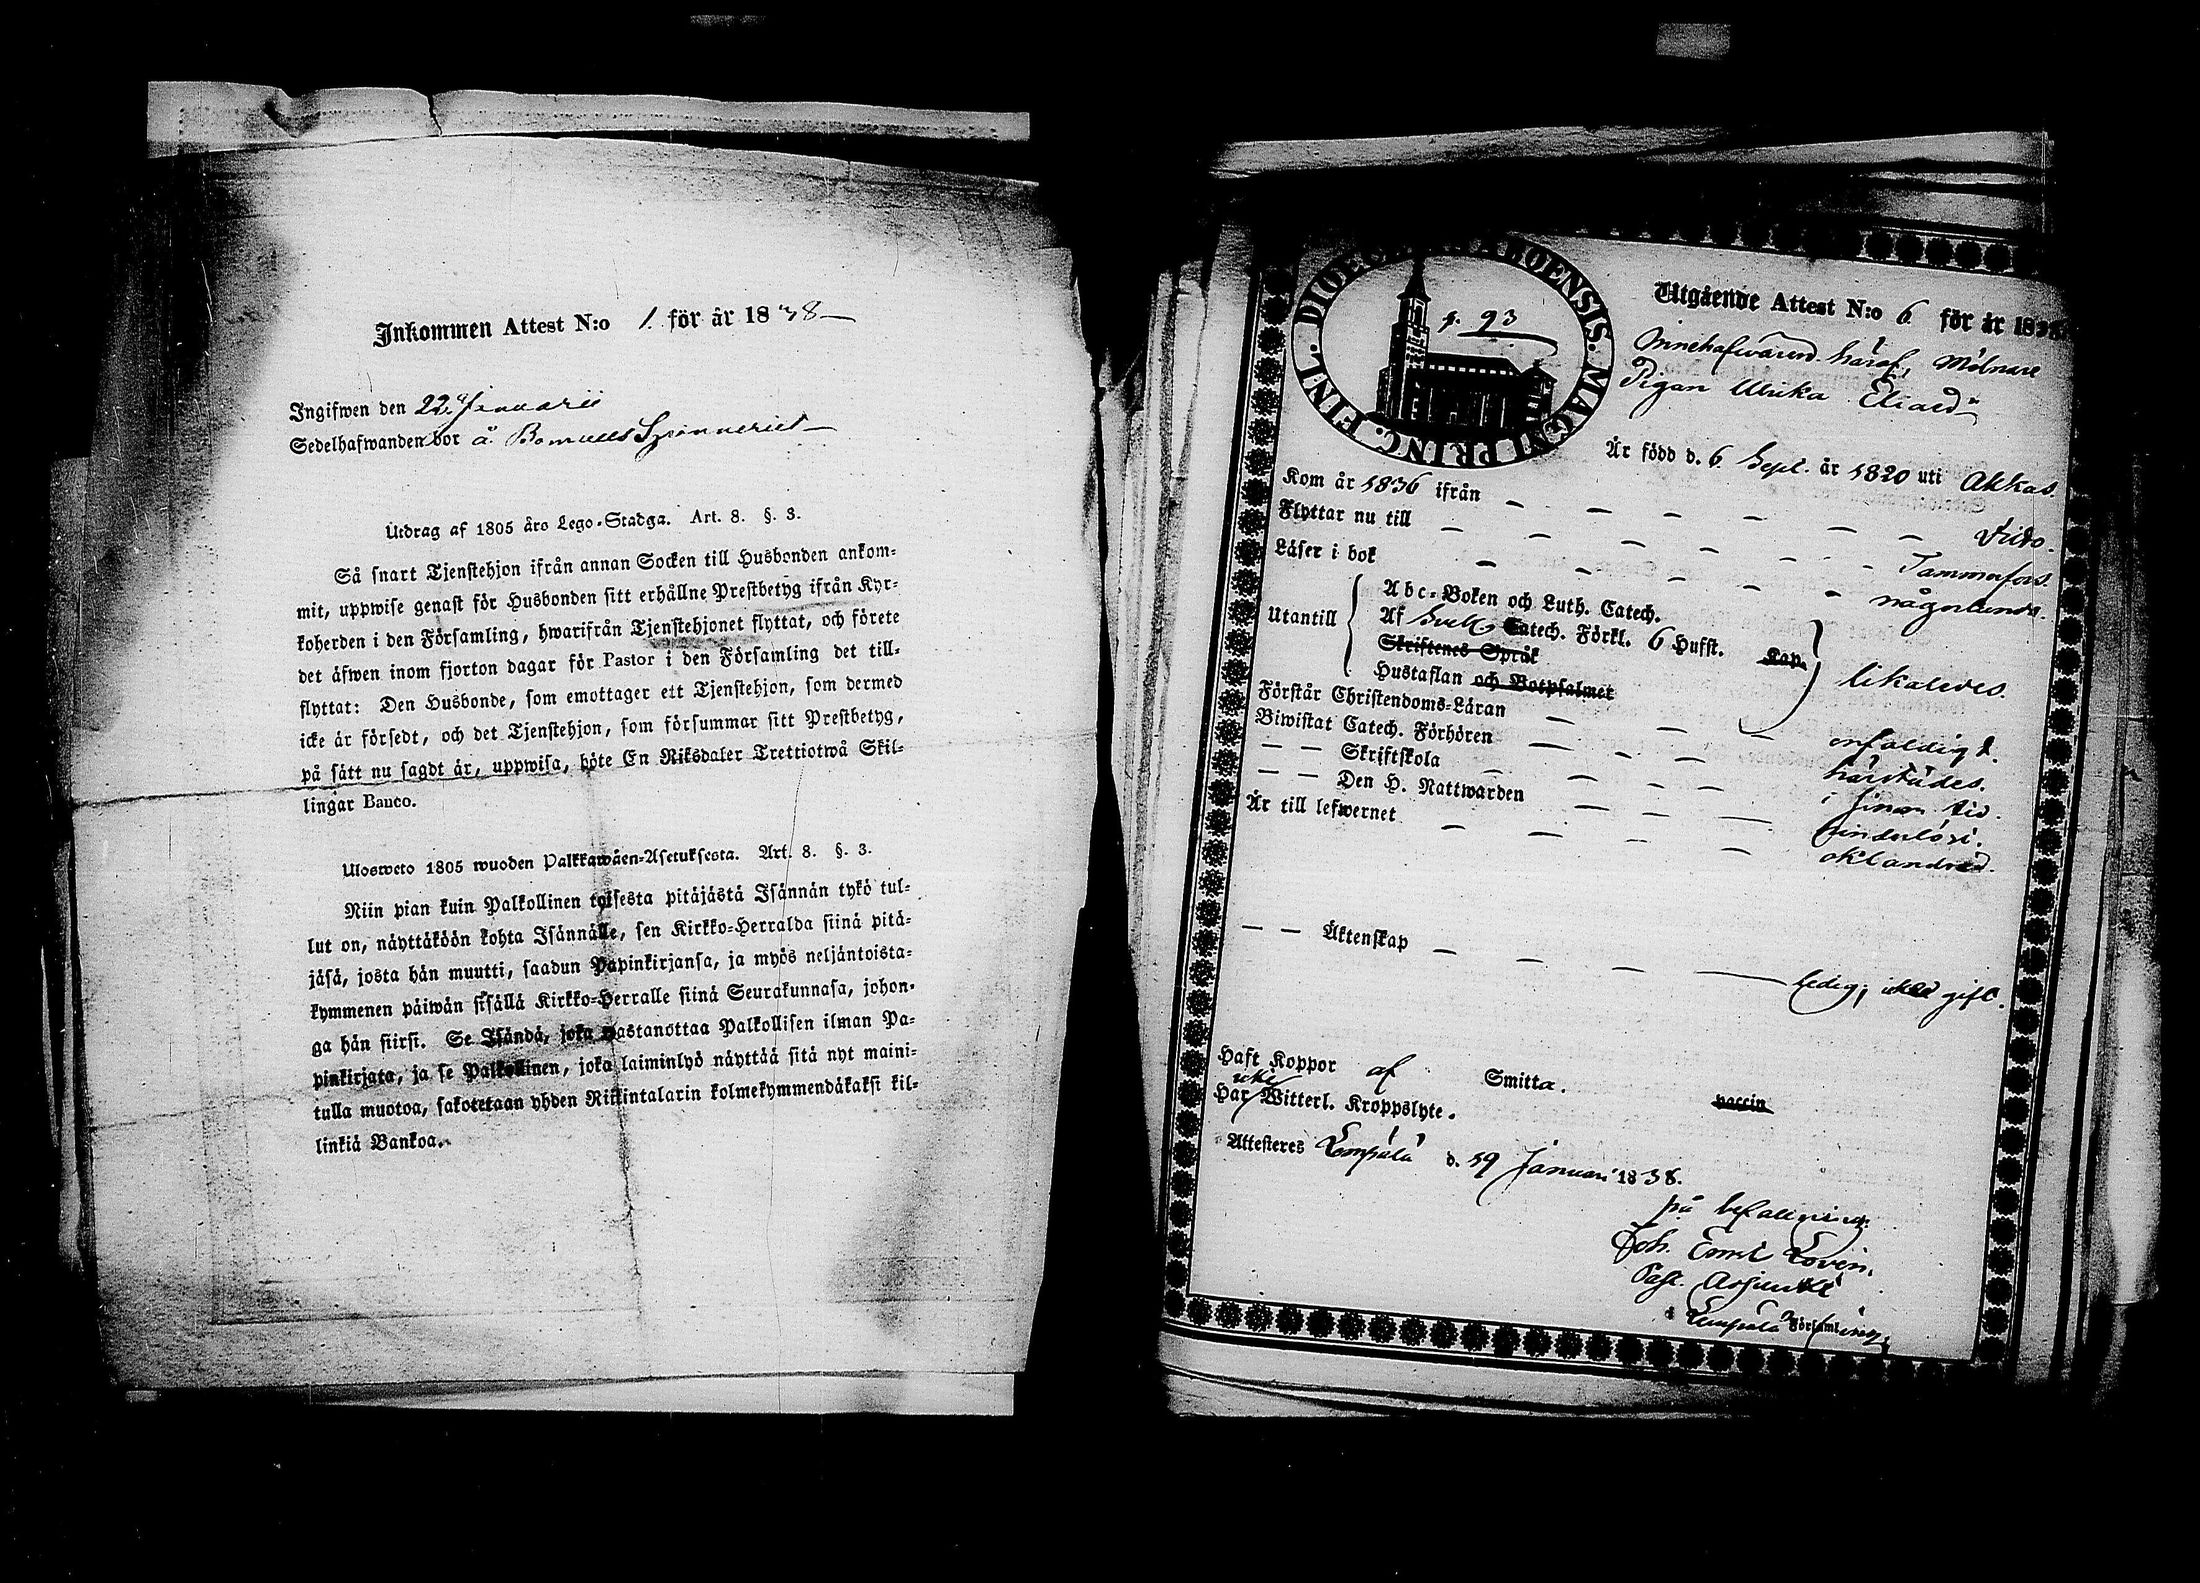 Inkommen Attest N:o 1. för år 1838
Ingifwen den 22 Januarii
Sedelhafwanden bor å Bomulls Spinneriet
Utdrag af 1805 års Lego-Stadga. Art. 8. §. 3.
Så snart Tjenstehjon ifrån annan Socken till Husbonden ankom-
mit, uppwise genast för Husbonden sitt erhållne Prestbetyg ifrån Kyr-
koherden i den Församling, hwarifrån Tjenstehjonet flyttat, och förete
det äfwen inom fjorton dagar för Pastor i den Församling det till-
flyttat: Den Husbonde, som emottager ett Tjenstehjon, som dermed
icke är försedt, och det Tjenstehjon, som försummar sitt Prestbetyg,
på sätt nu sagdt är, uppwisa, böte En Riksdaler Trettiotwå Skil-
lingar Banco.
Ulosweto 1805 wuoden Palkkawäen-Asetuksesta. Art. 8. §. 3.
Niin pian kuin Palkollinen toisesta pitäjästä Isännän tykö tul-
lut on, näyttäköön kohta Isännälle, sen Kirkko-Herralda siinä pitä-
jäsä, josta hän muutti, saadun Papinkirjansa, ja myös neljäntoista-
kymmenen päiwän sisällä Kirkko-Herralle siinä Seurakunnasa, johon-
ga hän siirsi. Se Isändä, joka wastanottaa Palkollisen ilman Pa-
pinkirjata, ja se Palkollinen, joka laiminlyö näyttää sitä nyt maini-
tulla muotoa, sakotetaan yhden Riikintalarin kolmekymmendäkaksi kil-
linkiä Bankoa.
DIOECES. ABOENSIS. MAGNI PRINC. FINL.
p. 93
Utgående Attest N:o 6 för år 1838
Innehafwaren häraf, Mölnare
Pigan Ulrika Eliaed:r
Är född d. 6 Sept. år 1820 uti Akkas.
Kom år 1836 ifrån — Dito.
Flyttar nu till — Tammerfors.
Läser i bok — någorlunda.
Utantill
Abc-Boken och Luth. Catech.
Af Sveb. Catech. Förkl. 6 Hufst. Kap.
Skriftenes Språk
Hustaflan och Botpsalmer
likaledes.
Förstår Christendoms-Läran — enfaldigt.
Biwistat Catech. Förhören — härstädes.
— — Skriftskola — i sinom tid.
— — Den H. Nattwarden — hinderlös.
Är till lefwernet — oklandrad.
— — Äktenskap — ledig, icke gift.
Haft Koppor af Smitta. vaccin
Har icke Witterl. Kroppslyte.
Attesteres Lempälä d. 19 Januari 1838.
på befallning
Joh. Ernst Lovén.
Past. Adjunkt
i Lempälä Församling